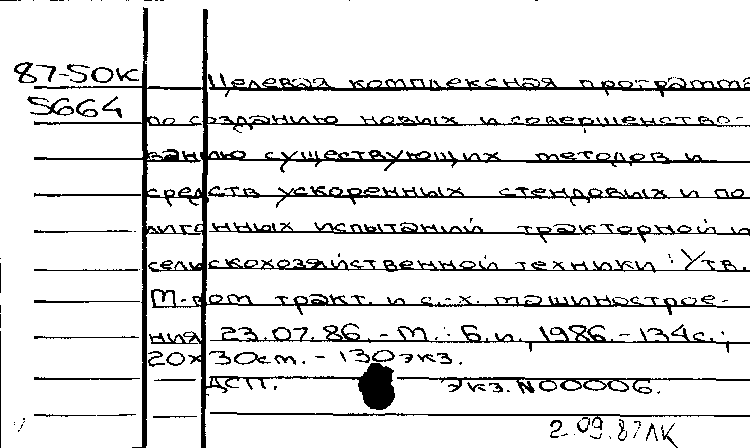 87-50К
5664
Целевая комплексная программа
по созданию новых и совершенство-
ванию существующих методов и
средств ускоренных стендовых и по
лигонных испытаний тракторной и
сельскохозяйственной техники : Утв.
М-вом тракт. и с.-х. машинострое-
ния 23.07.86. - М. : Б.и., 1986. - 134с.;
20х30см. - 130экз.
ДСП. Экз. N00006.
2.09.87ЛК